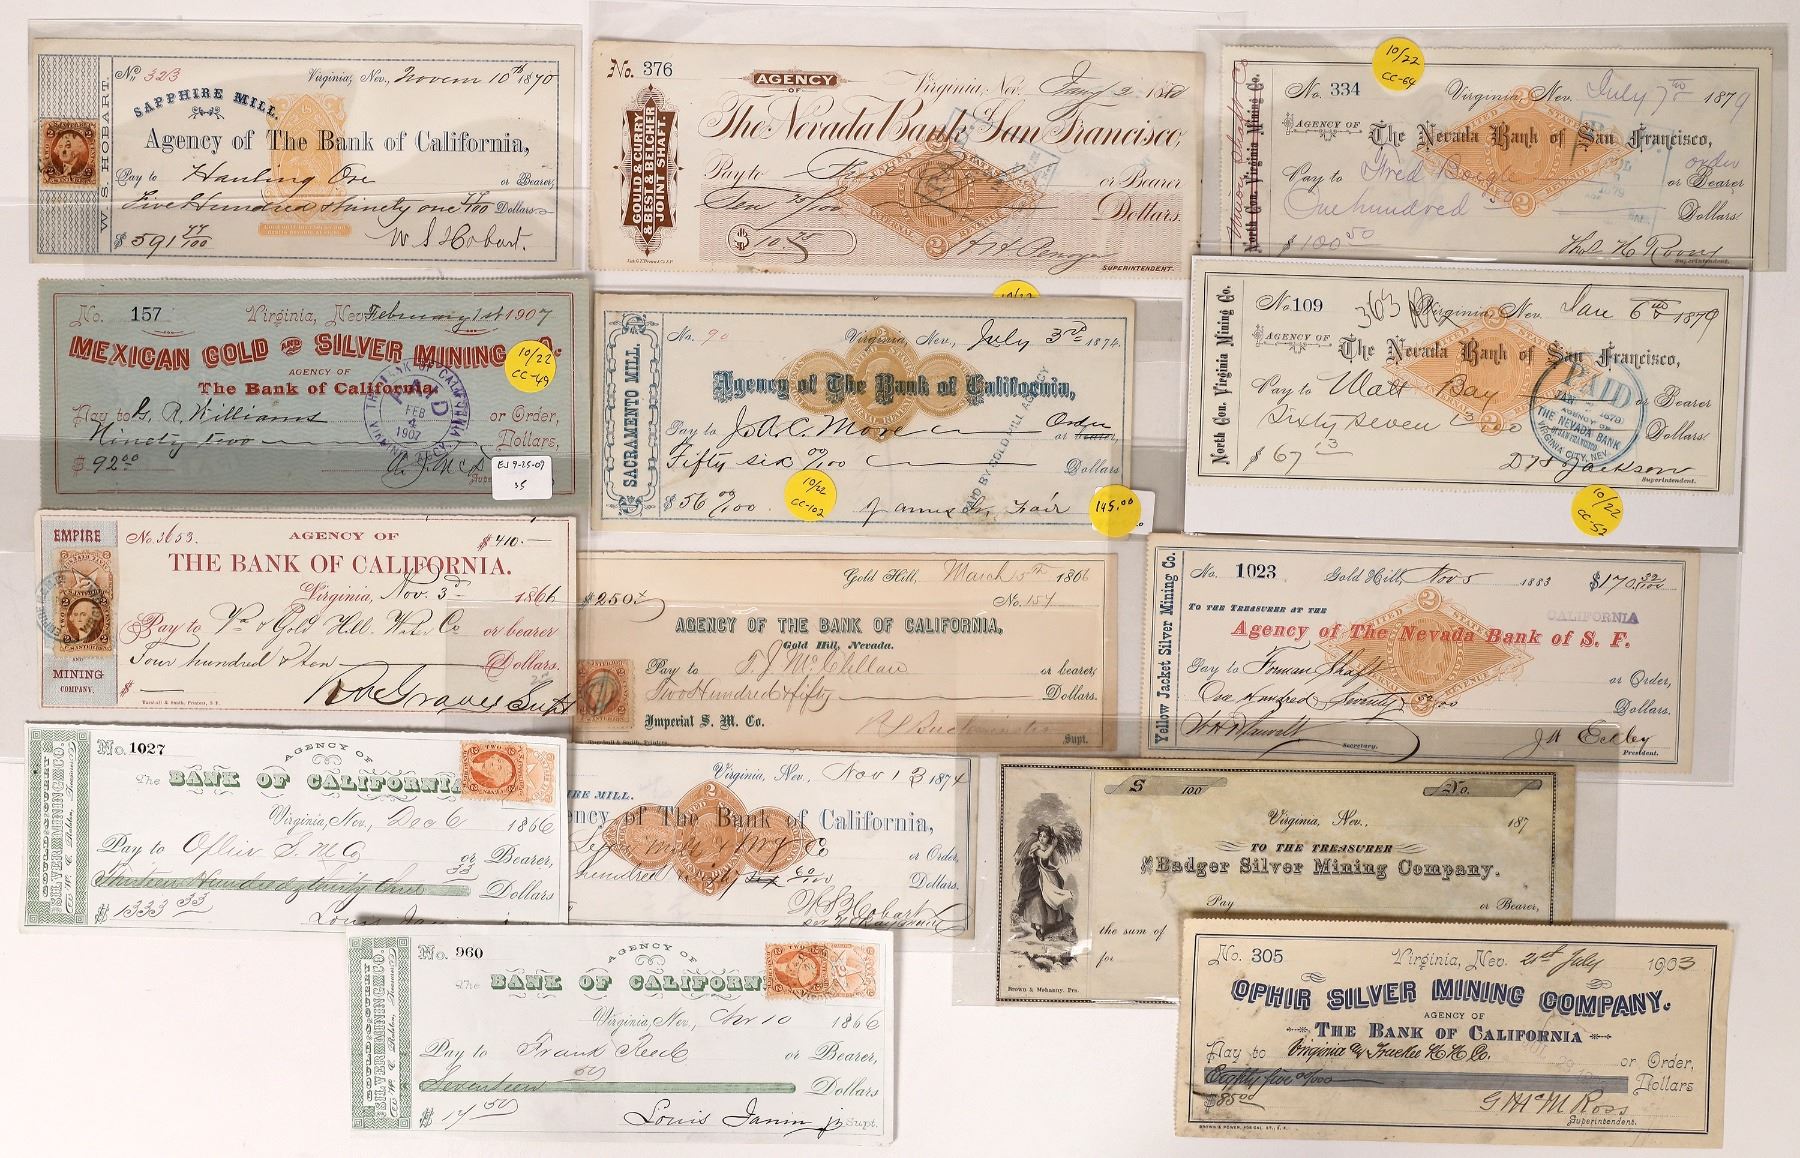 W. S. HOBART.
No. 323 Virginia, Nev., Novem 10th 1870
SAPPHIRE MILL.
Agency of The Bank of California,
Pay to Hauling Ore or Bearer,
Five Hundred & Ninety one 77/100 Dollars
$ 591 77/100 W. S. Hobart.
GOULD & CURRY
& BEST & BELCHER
JOINT SHAFT.
No. 376 Virginia, Nev. Jany 2 1880
AGENCY
OF
The Nevada Bank of San Francisco,
Pay to or Bearer
Ten 75/100 Dollars.
$ 10.75
SUPERINTENDENT.
10/22
CC-64
North Con. Virginia Mining Co.
No. 334 Virginia, Nev. July 7th 1879
AGENCY OF The Nevada Bank of San Francisco,
order
Pay to Fred Boegle or Bearer
One hundred Dollars
$ 100.50
Superintendent.
No. 157 Virginia, Nev. February 1st 1907
MEXICAN GOLD AND SILVER MINING CO.
AGENCY OF
The Bank of California,
Pay to G. R. Williams or Order,
Ninety two Dollars,
$ 92.00
10/22
CC-49
THE BANK OF CALIFORNIA
PAID
FEB
4
1907
VIRGINIA AGENCY
EJ 9-25-09
35
10/22
SACRAMENTO MILL.
No. 90 Virginia, Nev., July 3rd 1874
Agency of The Bank of California,
Pay to J. A. C. More Order
Fifty six 00/100 Dollars
$ 56 00/100 James G. Fair
PAID BY GOLD HILL AGENCY
10/22
CC-102
145.00
North Con. Virginia Mining Co.
No. 109 363 Virginia, Nev. Jan 6th 1879
AGENCY OF The Nevada Bank of San Francisco,
Pay to Matt Bay or Bearer
Sixty Seven Dollars
$ 67
Superintendent.
PAID
AGENCY OF
THE NEVADA BANK
OF SAN FRANCISCO
VIRGINIA CITY, NEV.
10/22
CC-52
EMPIRE
AND
MINING
COMPANY.
No. 3653. AGENCY OF $ 410.—
THE BANK OF CALIFORNIA.
Virginia, Nov. 3d 1866
Pay to Va & Gold Hill Water Co or bearer
Four hundred & ten Dollars.
Supt
Turnbull & Smith, Printers, S. F.
Gold Hill, March 15th 1866
$250 No. 154
AGENCY OF THE BANK OF CALIFORNIA,
Gold Hill, Nevada.
Pay to F. J. McClellan or bearer,
Two Hundred Fifty Dollars.
Imperial S. M. Co.
Supt.
Yellow Jacket Silver Mining Co.
No. 1023 Gold Hill, Nov 5 1883 $170 32/100
TO THE TREASURER AT THE CALIFORNIA
Agency of The Nevada Bank of S. F.
Pay to Forman Shaft or Order,
One Hundred Seventy Dollars.
Secretary. President.
SILVER MINING CO.
No. 1027 AGENCY OF
The BANK OF CALIFORNIA
Virginia, Nev., Dec 6 1866
Pay to Ophir S. M. Co or Bearer,
Thirteen Hundred & thirty three 33 Dollars
$ 1333 33
Virginia, Nev., Nov 13 1874
MILL.
Agency of The Bank of California,
or Order,
Dollars.
$ 100 No.
Virginia, Nev., 187
TO THE TREASURER
OF THE Badger Silver Mining Company.
Pay or Bearer,
the sum of
for
Brown & Mahanny, Prs.
SILVER MINING CO.
No. 960 AGENCY OF
The BANK OF CALIFORNIA
Virginia, Nev., 10 1866
Pay to Frank Reed or Bearer,
Seventeen 50 Dollars
$ 17 50 Louis Janin jr Supt.
No. 305 Virginia, Nev. 21st July 1903
OPHIR SILVER MINING COMPANY.
AGENCY OF
THE BANK OF CALIFORNIA
Pay to Virginia & Truckee R. R. Co. or Order,
Eighty five 00/100 Dollars
$85.00 G McM Ross
Superintendent.